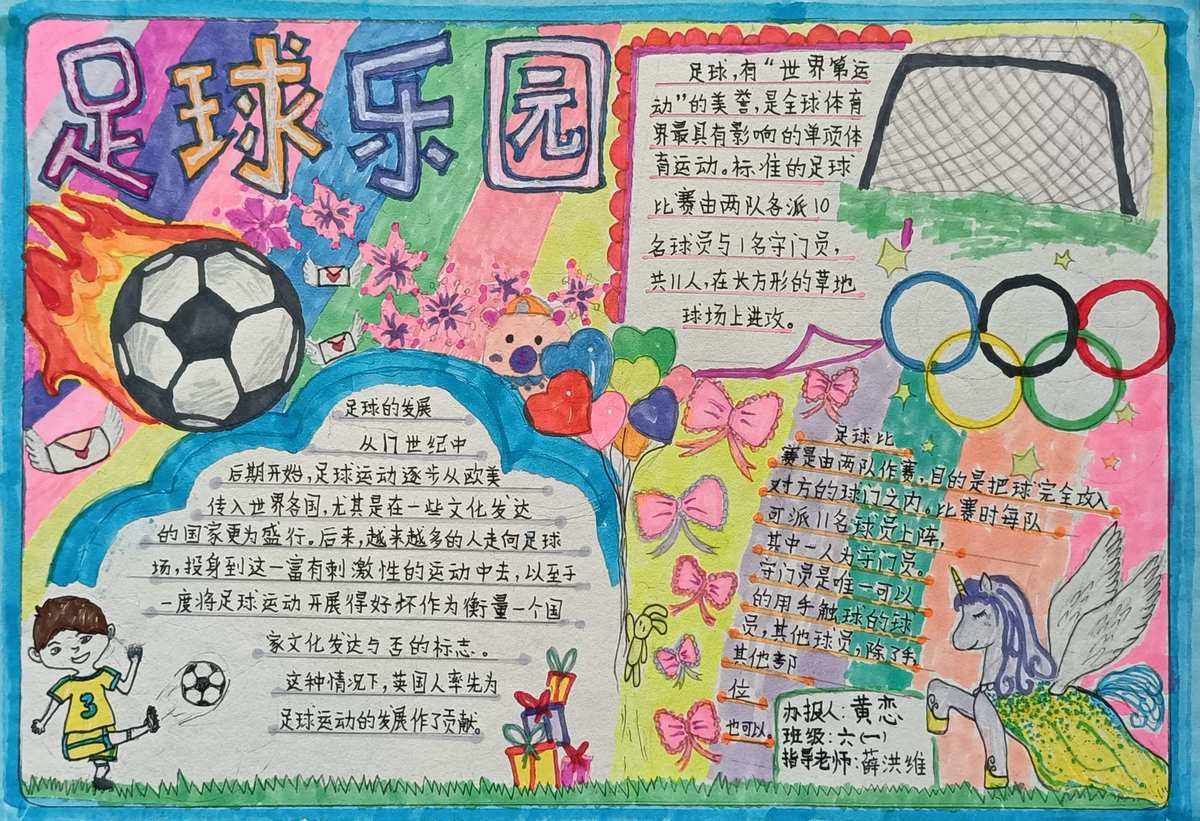 足球乐园
足球,有“世界第一运
动”的美誉,是全球体育
界最具有影响的单项体
育运动。标准的足球
比赛由两队各派10
名球员与1名守门员,
共11人,在长方形的草地
球场上进攻。
足球的发展
从17世纪中
后期开始,足球运动逐步从欧美
传入世界各国,尤其是在一些文化发达
的国家更为盛行。后来,越来越多的人走向足球
场,投身到这一富有刺激性的运动中去,以至于
一度将足球运动开展得好坏作为衡量一个国
家文化发达与否的标志。
这种情况下,英国人率先为
足球运动的发展作了贡献。
足球比
赛是由两队作赛,目的是把球完全攻入
对方的球门之内。比赛时每队
可派11名球员上阵,
其中一人为守门员。
守门员是唯一可以
的用手触球的球
员,其他球员,除了手,
其他部
位
也可以。
办报人:黄恋
班级:六(一)
指导老师:薛洪维
3